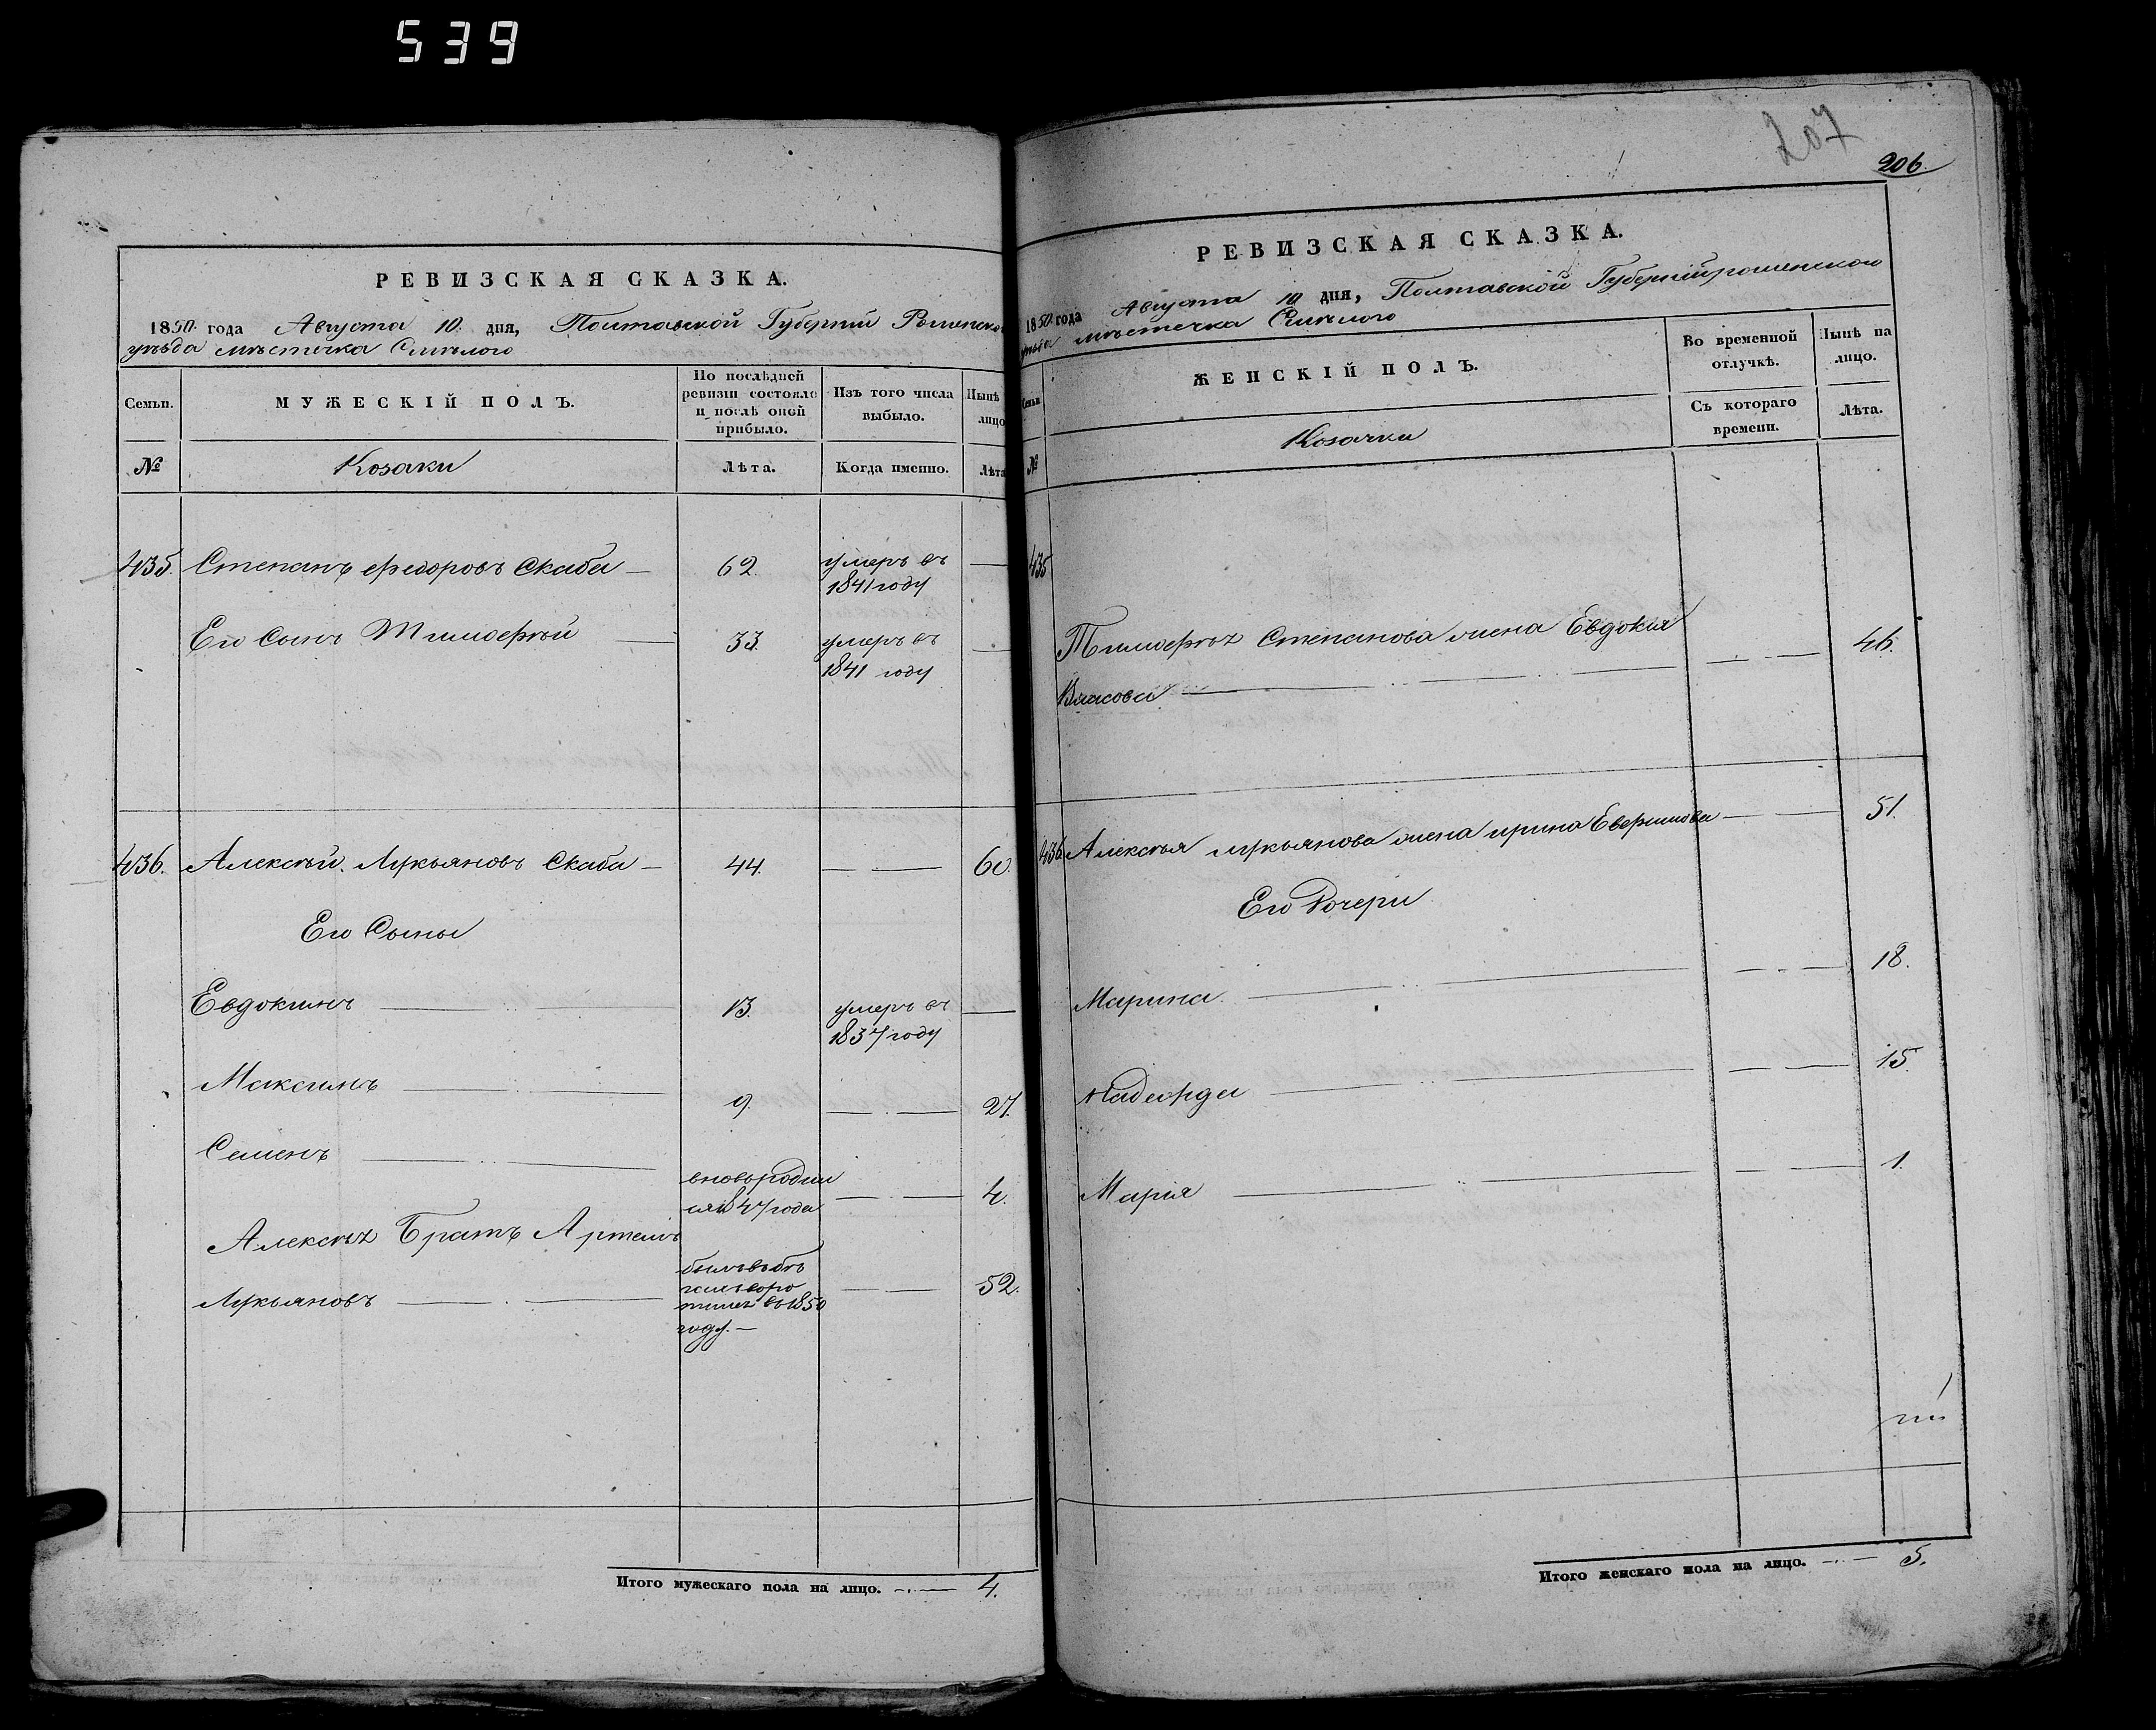 539
РЕВИЗСКАЯ СКАЗКА.
1850. года Августа 10. дня, Полтавской Губерніи Роменско
уѣзда мѣстечка Смѣлого
Семьи.
МУЖЕСКІЙ ПОЛЪ.
По послѣдней ревизіи состояло и послѣ оной прибыло.
Изъ того числа выбыло.
Нынѣ лицо
№
Козаки
Лѣта.
Когда именно.
Лѣта
435. Степанъ Федоровъ Скаба — 62. умеръ въ —
1841 году
Его Сынъ Тимофѣй — 33. умеръ въ —
1841 году
436. Алексѣй Лукьяновъ Скаба — 44. — 60.
Его Сыны
Евдокимъ — 13. умеръ въ —
1837 году
Максимъ — 9. — 27.
Семенъ —
вновь родил
ся 1847 года — 4.
Алексѣя Братъ Артемъ
Лукьяновъ —
былъ въ бѣ
1850 — 52.
году. —
Итого мужескаго пола на лицо. — 4.
207
206.
РЕВИЗСКАЯ СКАЗКА.
1850. года Августа 10 дня, Полтавской Губерніи роменского
уѣзда мѣстечка Смѣлого
Семьи
ЖЕНСКІЙ ПОЛЪ.
Во временной отлучкѣ.
Нынѣ на лицо.
Съ котораго времени.
Лѣта.
№
Козачки
435
Тимофѣя Степанова жена Евдокія
Власова — 46.
436. Алексѣя Лукьянова жена ирина — 51.
Его Дочери
Марина — 18.
Надежда — 15.
Марія — 1.
Итого женскаго пола на лицо. — 5.